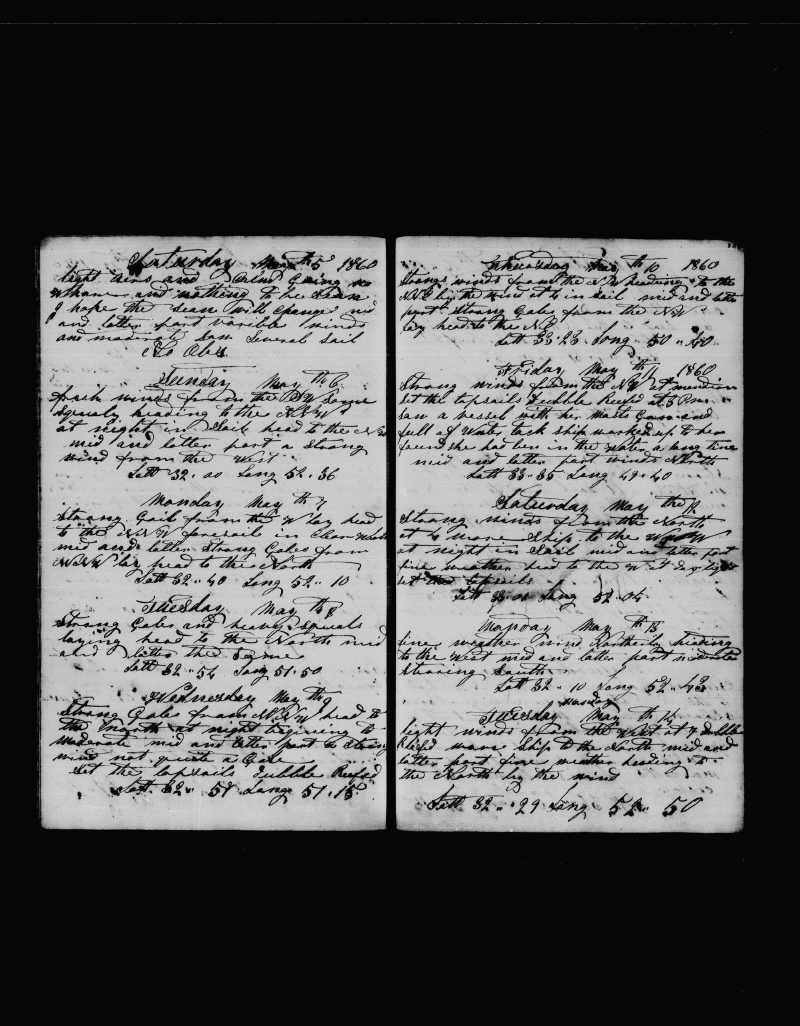 Saturday May th 5 1860
light airs and Calm Going no
whare and nothing to be Sean
I hope the Sean Will Change mid
and latter part varible winds
and moderate Saw Several Sail
No Obs
Sunday May th 6
fresh winds from the SW Some
Squaly heading to the NNW
at night in Sail head to the
mid and latter part a Strong
wind from the West
Latt 32.00 Long 52.36
Monday May th 7
Strong Gail from the W lay head
to the NNW foresail in
mid and latter Strong Gales from
NNW lay head to the North
Latt 32..40 Long 52..10
Tuesday May th 8
Strong Gales and heavy Squals
laying head to the North mid
and latter the Same
Latt 32..54 Long 51.50
Wednesday May th 9
Strong Gales from NNW head to
the North at night begining to
Moderate mid and latter part a Strong
wind not quite a Gale
Set the topsails Dubble Reefed
Latt 32.. 57 Long 51.15
Thursday May th 10 1860
Strong winds from the NW heading to the
NNE by the wind at 4 in Sail mid and latter
part Strong Gales from the NW
lay head to the NE
Latt 33.23 Long 50..40
Friday May th 11 1860
Strong winds from the NW at meridian
Set the topsails Dubble Reefd at 3 Pm
saw a vessel with her Masts Gone and
full of Water tack ship worked up to her
found she had ben in the Water a long time
mid and latter part winds North
Latt 33..35 Long 49.40
Saturday May the 12
Strong winds from the North
at 4 wore Ship to the
at night in Sail mid and latter part
fine weather head to the W at daylight
set the topsails
Latt 33.00 Long 52.04
Monday May th 13
fine weather wind Northerly heading
to the West mid and latter part moderate
Stearing South
Latt 32..10 Long 52..43
Monday
Tuesday May th 14
light winds from the West at 7 dubble
Reefd wore Ship to the North mid and
latter part fine weather heading to
the North by the wind
Latt 32..29 Long 52.. 50